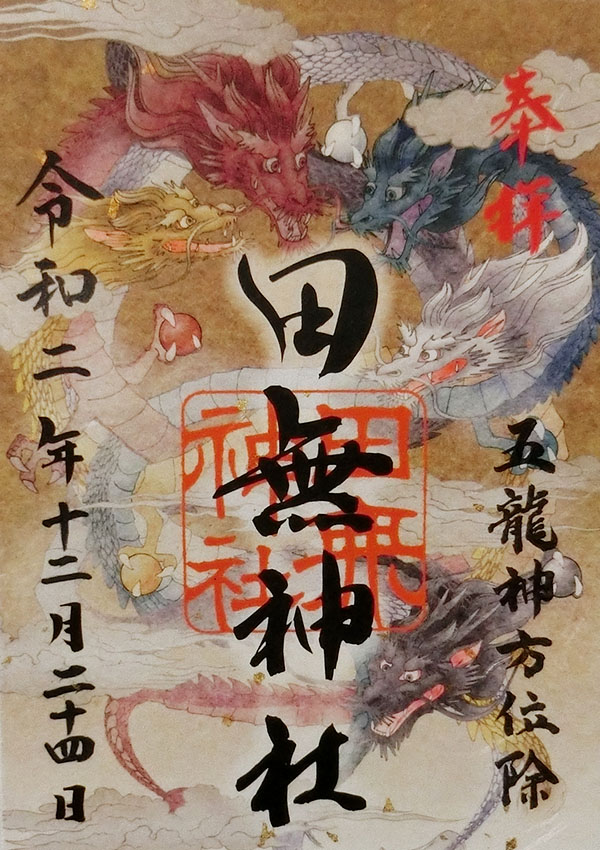 奉拝
五龍神方位除
田無神社
田無神社
令和二年十二月二十四日